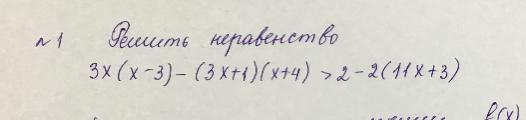 №1 Решить неравенство
3x(x-3)-(3x+1)(x+4)>2-2(11x+3)
f(x)